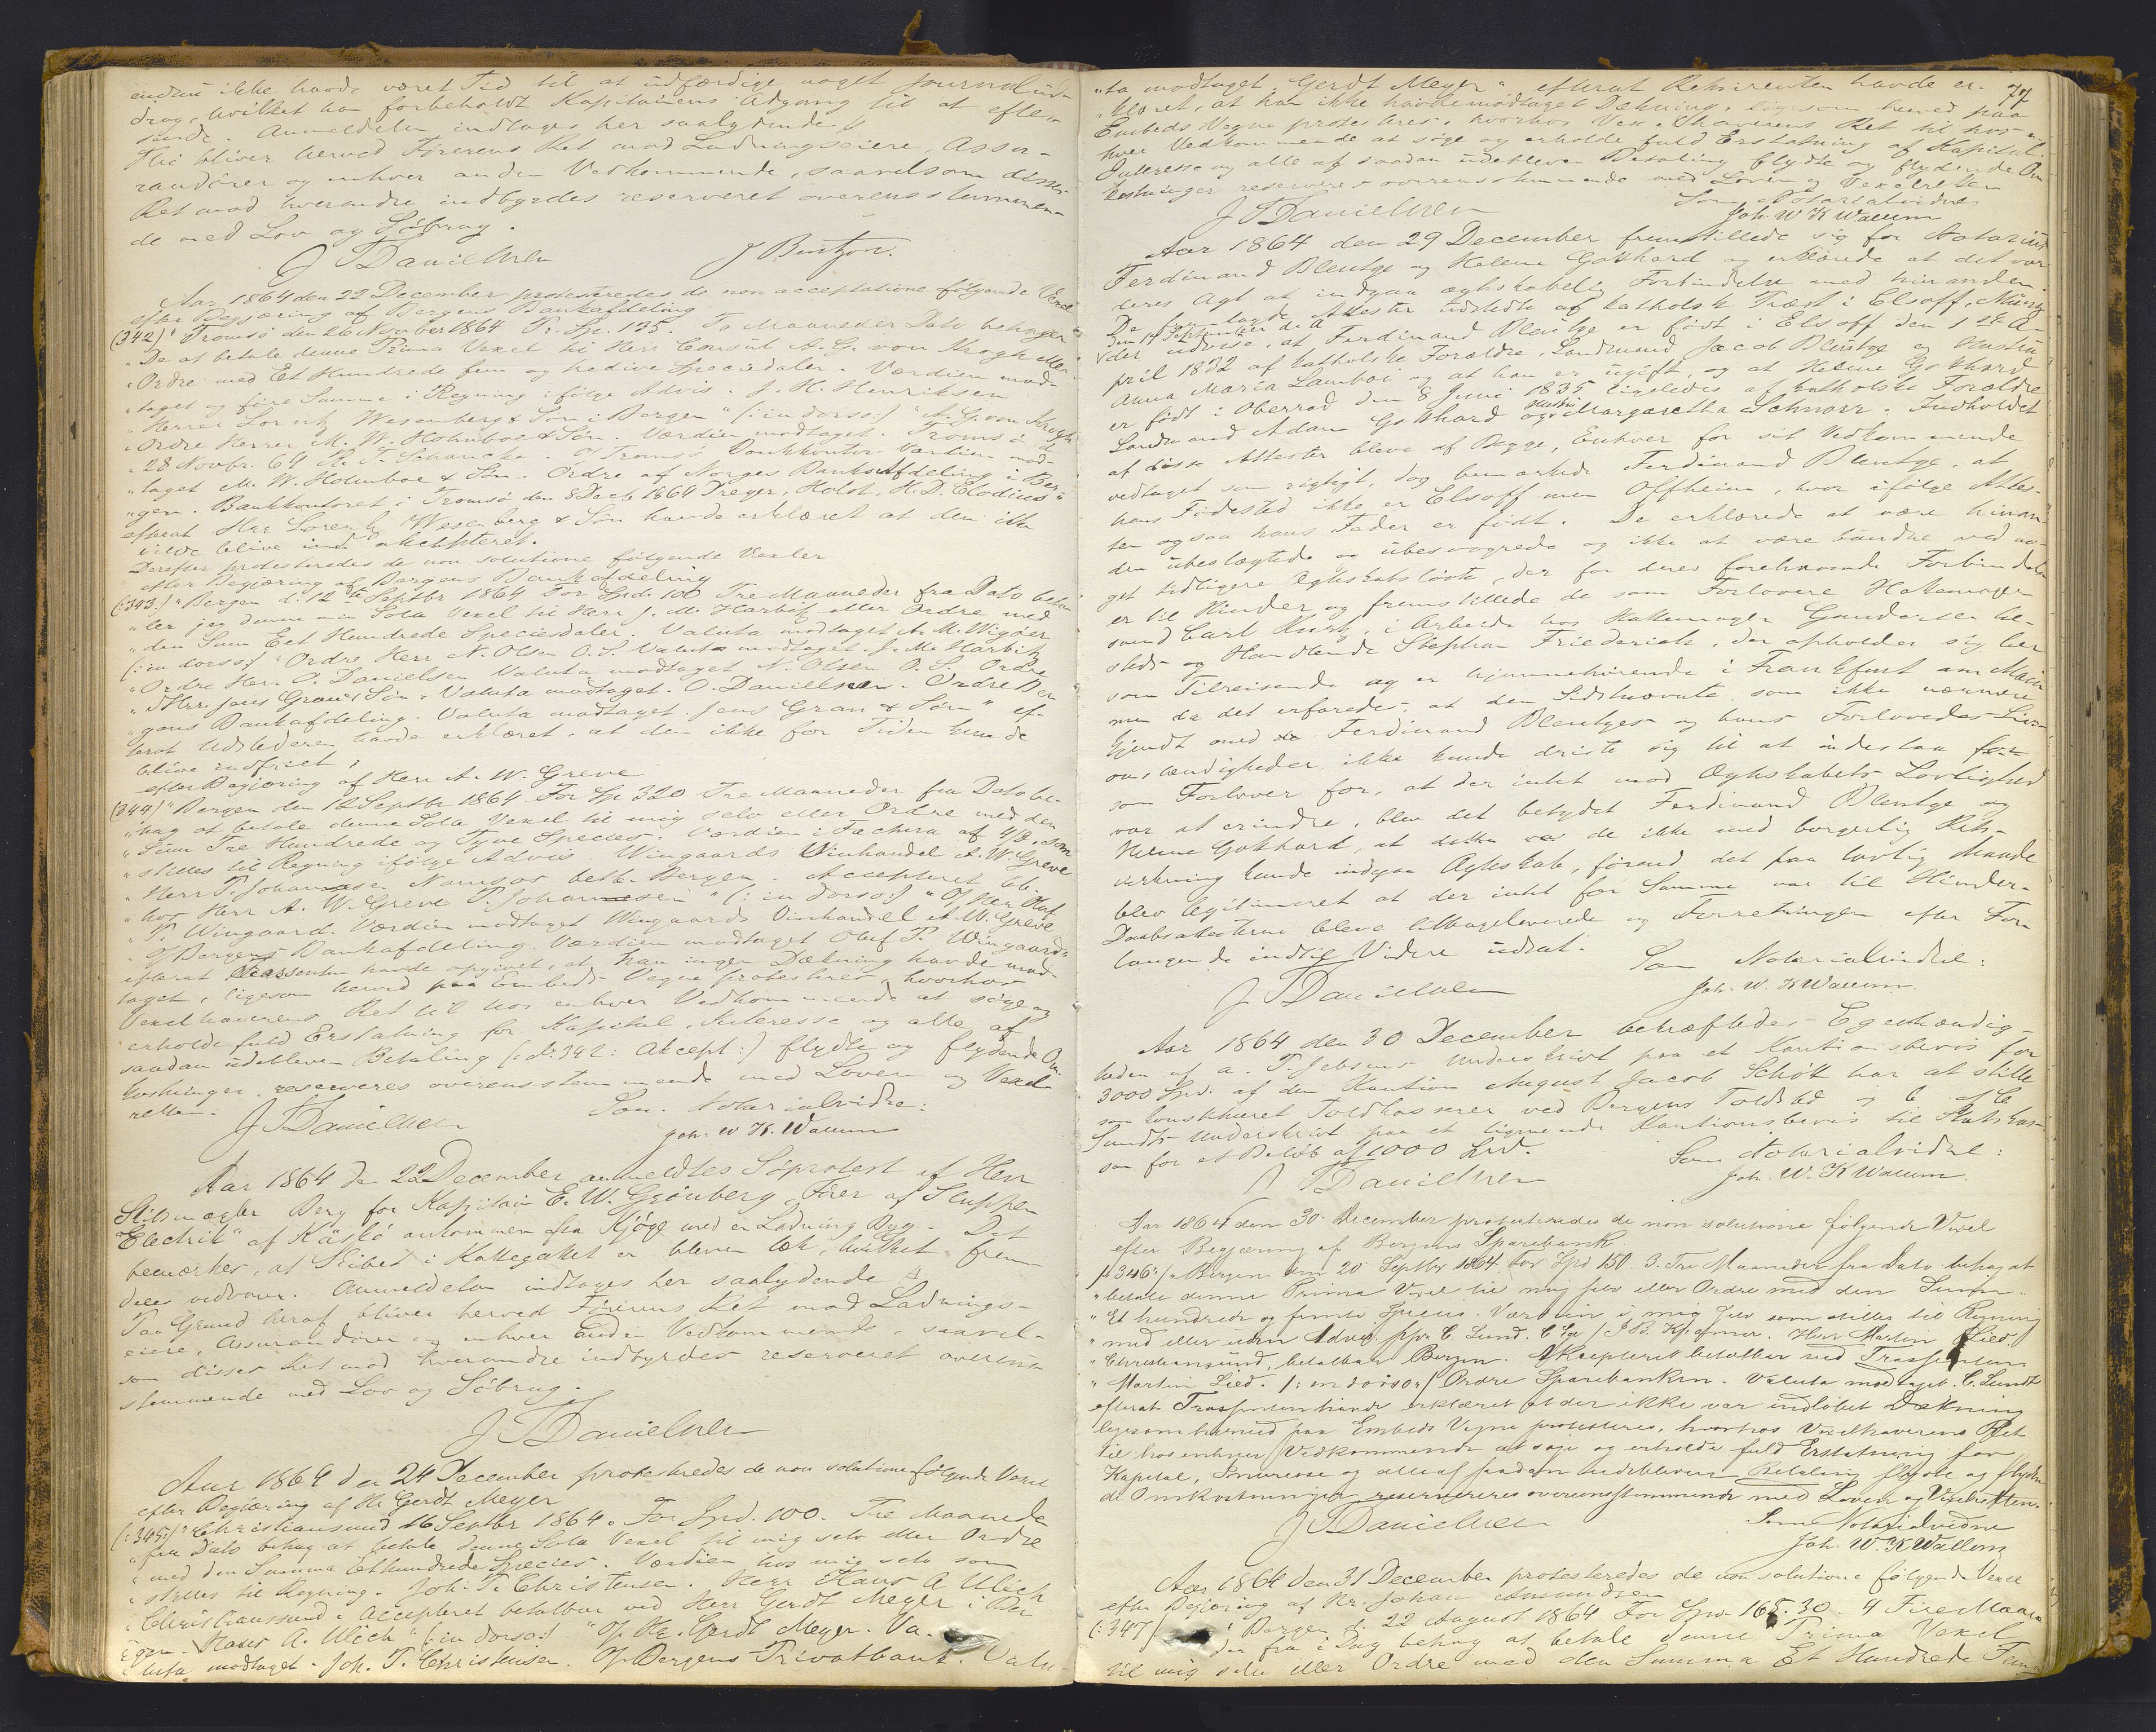 endnu ikke havde været Tid til at udfærdige noget Journalud-
drag, hvilket han forbeholdt Kapitainens Adgang til at efter-
sende. Anmeldelsen indtages her saalydende
Thi bliver herved Førerens Ret mod Ladningseiere, Assu-
randører og enhver anden Vedkommende, saavelsom disses
Ret mod hverandre indbyrdes reserveret overensstemmen-
de med Lov og Søbrug.
J Danielsen J Bentzon.
Aar 1864 den 22 December protesteredes de non acceptatione følgende Vexel
efter Begjæring af Bergens Bankafdeling
(342) "Tromsø den 26 November 1864 Pr. Sp. 135. To Maaneder Dato behager
"De at betale denne Prima Vexel til Herr Consul A. G. von Krogh eller
"Ordre med Et Hundrede fem og tredive Speciedaler. Værdien mod-
"taget og føre Summe i Regning ifølge Advis. J. H. Henriksen
"Herrer Lorentz Wesenberg & Søn i Bergen" (: in dorso:) "A. G. von Krogh
"Ordre Herrer M. W. Holmboe & Søn. Værdien modtaget. Tromsø d
"28 Novbr. 64 R. T. Schancke. Tromsø Bankkontor Værdien mod-
"taget M. W. Holmboe & Søn. Ordre af Norges Banks Afdeling i Ber-
"gen. Bankkontoret i Tromsø den 8 Decb 1864 Dreyer, Holst, H. D. Clodius"
efterat Herr Lorentz Wesenberg & Søn havde erklæret at den ikke
vilde blive akcepteret.
Derefter protesteredes de non solutione følgende Vexler
efter Begjæring af Bergens Bankafdeling
(:343:) "Bergen d. 12te Septbr 1864 For Spd. 100 Tre Maaneder fra Dato beta-
"ler jeg denne min Sola Vexel til Herr J. M. Harbitz eller Ordre med
"den Sum Eet Hundrede Speciesdaler. Valuta modtaget A. M. Wigøer
(: in dorso:) "Ordre Herr N. Olsen O. S. Valuta modtaget. J. M. Harbitz
"Ordre Herr O. Danielsen Valuta modtaget N. Olsen O. S. Ordre
"Herr Jens Gran & Søn. Valuta modtaget. O. Danielsen. Ordre Ber
"gens Bankafdeling. Valuta modtaget. Jens Gran & Søn" ef-
terat Udstederen havde erklæret, at den ikke for Tiden kunde
blive indfriet;
efter Begjæring af Herr A. W. Greve
(344) "Bergen den 12 Septbr 1864 For Sp 320 Tre Maaneder fra Dato be-
"hag at betale denne Sola Vexel til mig selv eller Ordre med den
"Sum Tre Hundrede og Tyve Species. Værdien i Factura af som
"stilles til Regning ifølge Advis Wingaards Vinhandel A. W. Greve
"Herr P. Johannesen Namsos betb. Bergen. Accepteret bb.
"hos Herr A. W. Greve P. Johannesen" (: in dorso:) "Of Herr Oluf
"T. Wingaard. Værdien modtaget Wingaards Vinhandel A. W. Greve
"Of Bergens Bankafdeling. Værdien modtaget Oluf T. Wingaard"
efterat Trassenten havde opgivet, at han ingen Dækning havde mod-
taget, ligesom herved paa Embeds Vegne protesteres, hvorhos
Vexelhaverens Ret til hos enhver Vedkommende at søge og
erholde fuld Erstatning for Kapital, Interesse og alle af
saadan udebleven Betaling (: No 342: Akcept:) flydte og flydende Om-
kostninger reserveres overensstemmende med Loven og Vexel
retten. Som Notarialvidne:
J Danielsen Joh. W K. Wallem
Aar 1864 den 22 December anmeldtes Søprotest af Herr
Skibsmægler Berg for Kapitain E. W. Grönberg, Fører af Sluppen
"Electrik" af Käskö ankommen fra Kjøge med en Ladning Byg. Det
bemærkes, at Skibet i Kattegattet er bleven læk, hvilket frem
deles vedvarer. Anmeldelsen indtages her saalydende
Paa Grund heraf bliver herved Førerens Ret mod Ladnings-
eiere, Assurandører og enhver Anden Vedkommende, saavel-
som disses Ret mod hverandre indbyrdes reserveret overens-
stemmende med Lov og Søbrug.
J Danielsen
Aar 1864 den 24 December protesteredes de non solutione følgende Vexel
efter Begjæring af Hr Gerdt Meyer
(:345:) "Christiansund 16 Septbr 1864. For Spd. 100. Tre Maaneder
"fra Dato behag at betale denne Sola Vexel til mig selv eller Ordre
"med den Summa Ethundrede Species. Værdien hos mig selv som
"stilles til Regning. Joh. T. Christensen. Herr Hans A Ulich
"Christiansund. Accepteret betalbar ved Herr Gerdt Meyer i Ber
"gen. Hans A. Ulich" (: in dorso:) "Of Hr. Gerdt Meyer. Va-
"luta modtaget. Joh. T. Christensen. Of Bergens Privatbank. Valu-
77
"ta modtaget. Gerdt Meyer" efterat Rekvirenten havde er-
klæret, at han ikke havde modtaget Dækning, ligesom herved paa
Embeds Vegne protesteres, hvorhos Vexelhaverens Ret til hos en-
hver Vedkommende at søge og erholde fuld Erstatning af Kapital
Interesse og alle af saadan udebleven Betaling flydte og flydende Om
kostninger reserveres overensstemmende med Loven og Vexelretten
Som Notarialvidne
J Danielsen Joh. W K Wallem
Aar 1864 den 29 December fremstillede sig for Notarius
Ferdinand Blentge og Helene Gotthard og erklærede at det var
deres Agt at indgaa ægteskabelig Forbindelse med hinanden.
De fremlagde Attester udstedte af katholsk Præst i Elsoff, Müntz
den 14 September d. A.
der udvise, at Ferdinand Blentge er født i Elsoff den 1ste A-
pril 1832 af katholske Forældre, Landmand Jacob Blentge og Hustru
Anna Maria Lamboi og at han er ugift, og at Helene Gotthard
er født i Oberrad den 8 Juni 1835 ligeledes af katholske Forældre
Landmand Adam Gotthard og Hustru Margaretha Schnorr. Indholdet
af disse Attester blev af Begge, Enhver for sit Vedkommende
vedtaget som rigtigt, dog bemærkede Ferdinand Blentge, at
hans Fødested ikke er Elsoff men Offheim, hvor ifølge Attes-
ten ogsaa hans Fader er født. De erklærede at være hinan-
den ubeslægtede og ubesvogrede og ikke at være bundne ved no-
get tidligere Ægteskabsløvte, der for deres forehavende Forbindelse
er til Hinder og fremstillede de som Forlovere Hattemager
svend Carl Kusk, i Arbeide hos Hattemager Gundersen he-
steds og Handlende Stephan Friederich, der opholder sig her
som Tilreisende og er hjemmehørende i Frankfurt am Main
men da det erfaredes, at den Sidstnævnte, som ikke nærmere
kjendt med Ferdinand Blentges og hans Forlovedes Livs-
omstændigheder, ikke kunde driste sig til at indestaa
som Forlover for, at der intet mod Ægteskabets Lovlighed
var at erindre, blev det betydet Ferdinand Blentge og
Helene Gotthard, at de ikke med borgerlig Rets-
virkning kunde indgaa Ægteskab, førend det paa lovlig Maade
blev legitimeret at der intet for Samme var til Hinder.
Daabsattesterne bleve tilbageleverede og Forretningen efter For-
langende indtil Videre udsat.
Som Notarialvidne:
J Danielsen Joh. W. K Wallem.
Aar 1864 den 30 December bekræftedes Egenhændig-
heden af a. T. Jebsens Underskrivt paa et Kautionsbevis for
3000 Spd. af den Kaution August Jacob Schøtt har at stille
som konstitueret Toldkasserer ved Bergens Toldsted og C.
Sundts Underskrivt paa et lignende Kautionsbevis til Statskas-
sen for et Beløb af 1000 Spd.
Som Notarialvidne:
J Danielsen Joh. W. K Wallem.
Aar 1864 den 30. December protesteredes de non solutione følgende Vexel
efter Begjæring af Bergens Sparebank.
(:346:) "Bergen den 20 Septbr 1864. For Spd 150. 3. Tre Maaneder fra Dato behag at
"betale denne Prima Vexel til mig selv eller Ordre med den Summ
"Et hundrede og femti Species. Værdien i mig selv som stilles til Regning
"med eller uden Advis. ppr C. Sundt. J B. Kramer. Herr Martin Lied
"Christiansund, betalbar Bergen. Akcepteret betalbar ved Trassenten
"Martin Lied. (: in dorso:) Ordre Sparebanken. Valuta modtaget. C. Sundt
efterat Trassenten havde erklæret at der ikke var indløbet Dækning
ligesom herved paa Embeds Vegne protesteres, hvorhos Vexelhaverens Ret
til hos enhver Vedkommende at søge og erholde fuld Erstatning for
Kapital, Interesse og alle af saadan udebleven Betaling flydte og flyden
de Omkostninger reserveres overensstemmende med Loven og Vexelretten.
Som Notarialvidne
J Danielsen Joh. W. K Wallem
Aar 1864 den 31 December protesteredes de non solutione følgende Vexel
efter Begjæring af Hr. Johan Amundsen
(:347:) Bergen d. 22 August 1864 For Spd. 165.30. 4 Fire Maane
der fra i Dag behag at betale denne Prima Vexel
til mig selv eller Ordre med den Summa Et Hundrede Fem